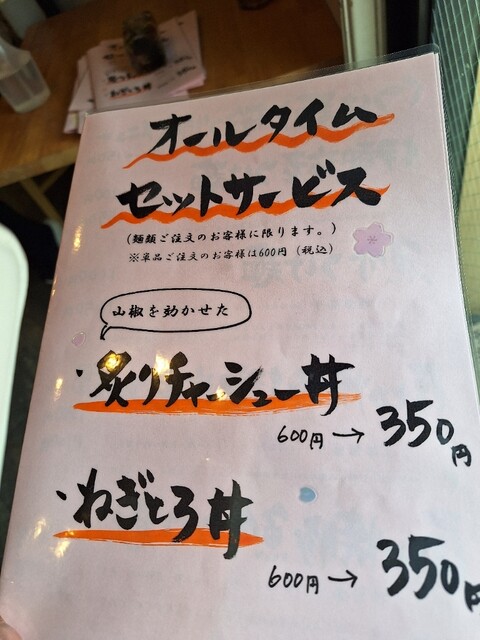 オールタイム
セットサービス
(麺類ご注文のお客様に限ります。)
※単品ご注文のお客様は600円（税込）
山椒を効かせた
・炙りチャーシュー丼
600円→350円
・ねぎとろ丼
600円→350円
ねぎとろ丼